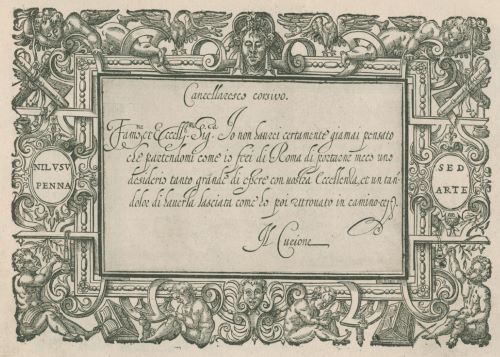 Cancellaresco corsivo.
et Eccell.ma Sig.ra Io non haurei certamente giamai pensato
che partendomi come io feci di Roma di portarne meco uno
desiderio tanto grande di essere con uostra Eccellenza, et un tan-
dolor di hauerla lasciata come poi ritrouato in camino
Il Curione
NIL VSV
PENNA
SED
ARTE